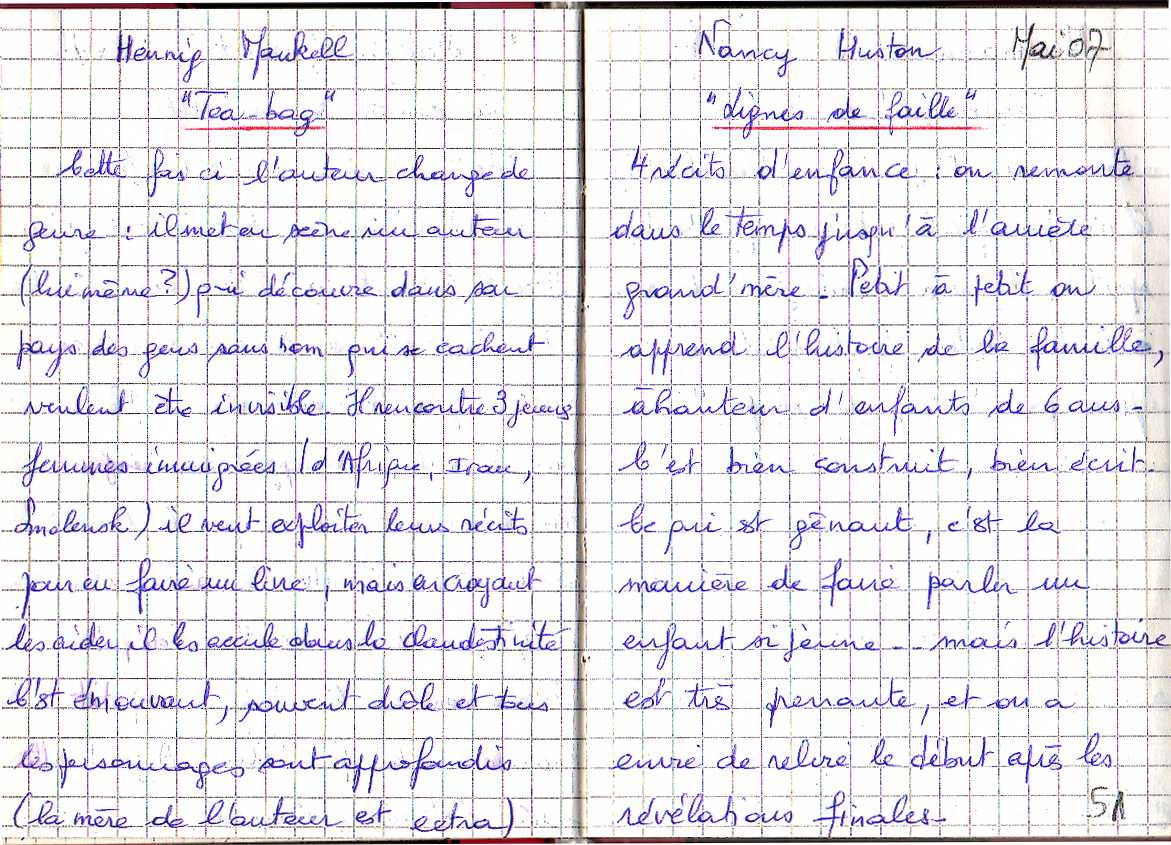 Hennig Mankell
"Tea-bag"
Cette fois ci l'auteur change de
genre : il met en scène un auteur
(lui même ?) qui découvre dans son
pays des gens sans nom qui se cachent
veulent être invisible. Il rencontre 3 jeunes
femmes immigrées (d'Afrique, Iran,
Smolensk) il veut exploiter leurs récits
pour en faire un livre, mais en croyant
les aider il les accule dans la clandestinité
C'est émouvant, souvent drôle et tous
les personnages sont approfondis
(la mère de l'auteur est extra)
Nancy Huston Mai 07
"Lignes de faille"
4 récits d'enfance : on remonte
dans le temps jusqu'à l'arrière
grand'mère - Petit à petit on
apprend l'histoire de la famille,
à hauteur d'enfants de 6 ans -
C'est bien construit, bien écrit -
Ce qui est gênant, c'est la
manière de faire parler un
enfant si jeune -- mais l'histoire
est très prenante, et on a
envie de relire le début après les
révélations finales -
51